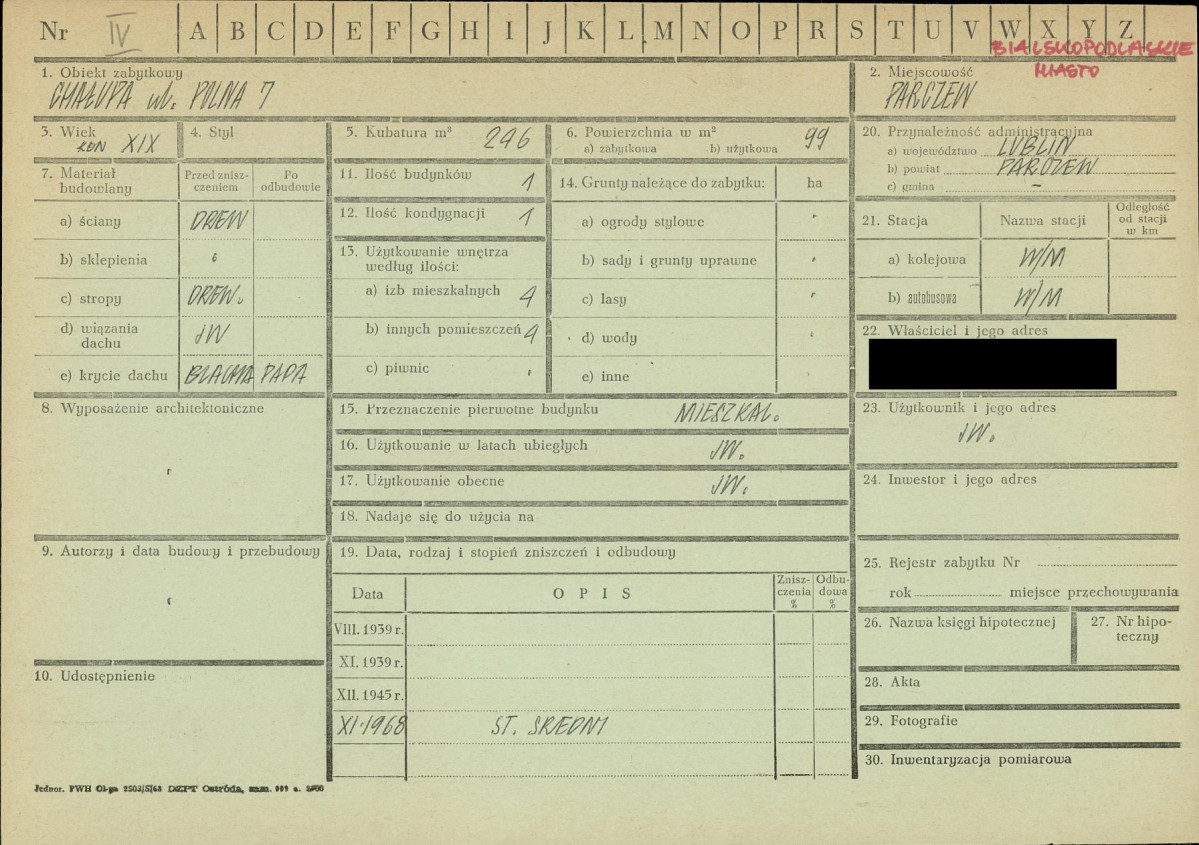 Nr IV A B C D E F G H I J K L M N O P R S T U V W X Y Z
BIALSKOPODLASKIE
MIASTO
1. Obiekt zabytkowy
CHAŁUPA ul. POLNA 7
2. Miejscowość
PARCZEW
3. Wiek
KON XIX
4. Styl
5. Kubatura m³ 246
6. Powierzchnia w m² 99
a) zabytkowa b) użytkowa
20. Przynależność administracyjna
a) województwo LUBLIN
b) powiat PARCZEW
c) gmina –
7. Materiał budowlany
Przed zniszczeniem
Po odbudowie
a) ściany DREW
b) sklepienia
c) stropy DREW.
d) wiązania dachu JW
e) krycie dachu BLACHA PAPA
11. Ilość budynków 1
12. Ilość kondygnacji 1
13. Użytkowanie wnętrza według ilości:
a) izb mieszkalnych 4
b) innych pomieszczeń 4
c) piwnic
14. Grunty należące do zabytku: ha
a) ogrody stylowe
b) sady i grunty uprawne
c) lasy
d) wody
e) inne
21. Stacja Nazwa stacji Odległość od stacji w km
a) kolejowa W/M
b) autobusowa W/M
22. Właściciel i jego adres
8. Wyposażenie architektoniczne
15. Przeznaczenie pierwotne budynku MIESZKAL.
16. Użytkowanie w latach ubiegłych JW.
17. Użytkowanie obecne JW.
18. Nadaje się do użycia na
23. Użytkownik i jego adres
JW.
24. Inwestor i jego adres
9. Autorzy i data budowy i przebudowy
10. Udostępnienie
19. Data, rodzaj i stopień zniszczeń i odbudowy
Data OPIS Zniszczenia % Odbudowa %
VIII. 1939 r.
XI. 1939 r.
XII. 1945 r.
XI.1968 ST. ŚREDNI
25. Rejestr zabytku Nr
rok miejsce przechowywania
26. Nazwa księgi hipotecznej
27. Nr hipoteczny
28. Akta
29. Fotografie
30. Inwentaryzacja pomiarowa
Jednor. PWH DZPT Ostróda, zam.